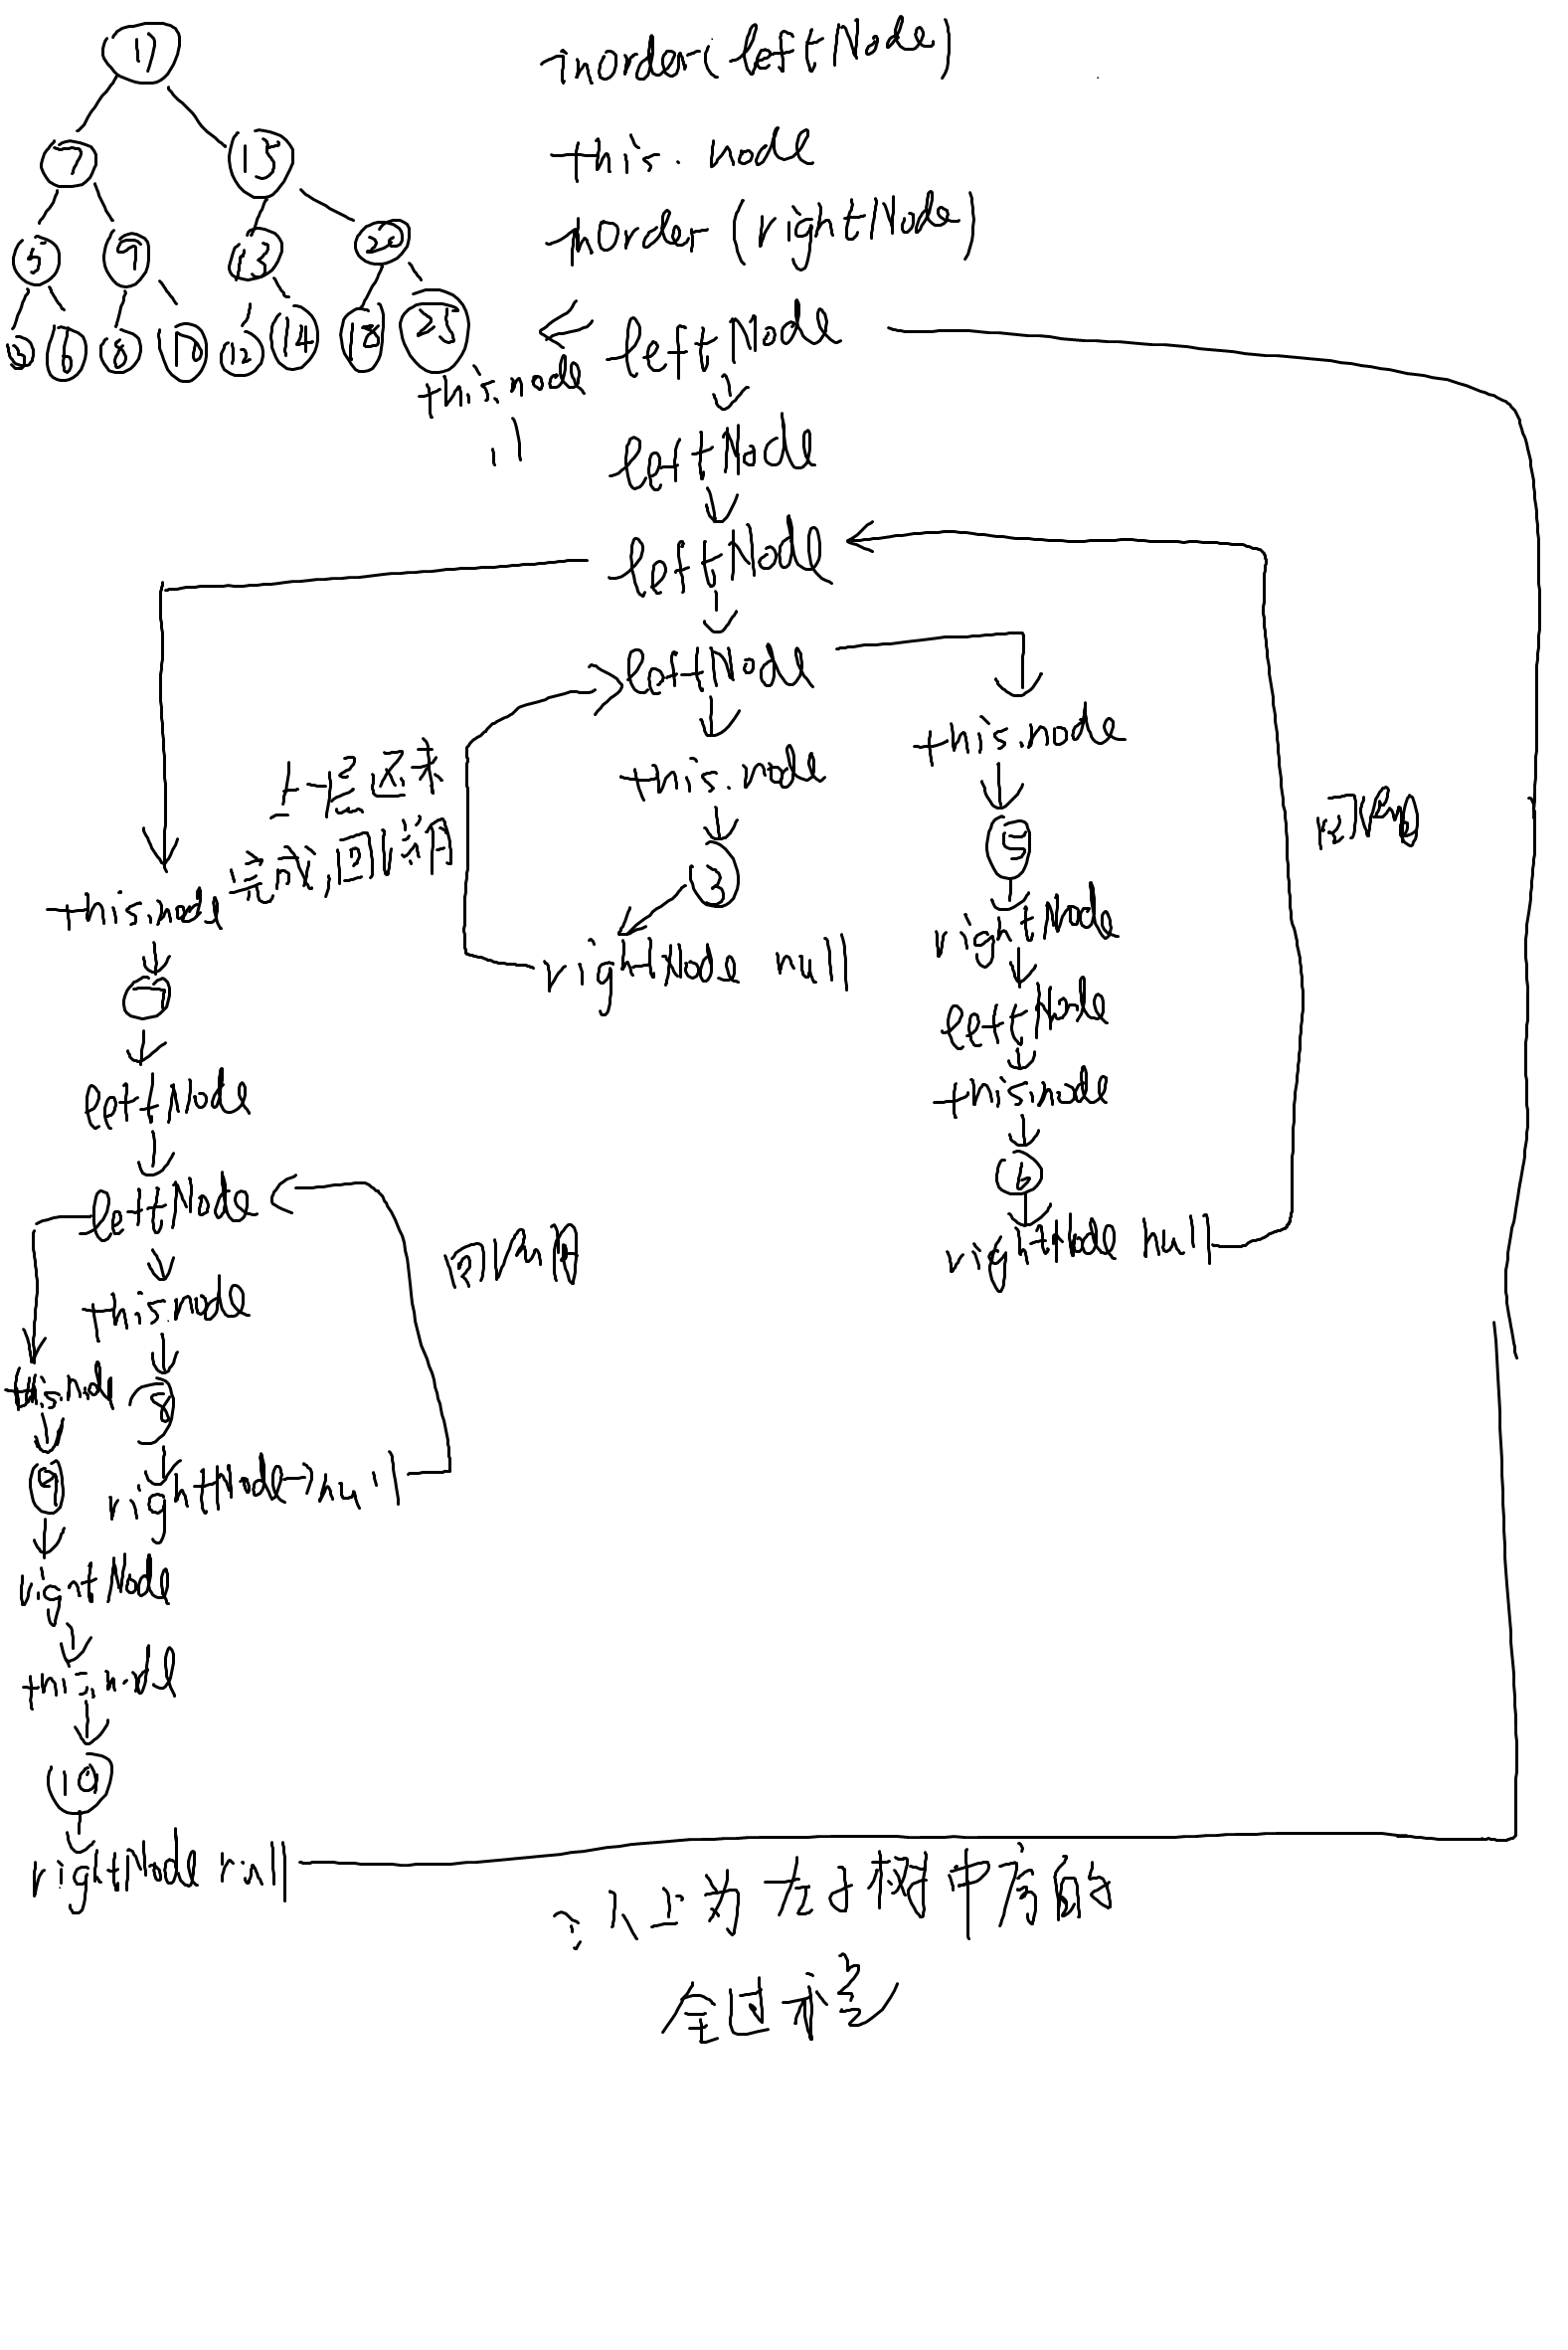 11
7 15
5 9 13 20
3 6 8 10 12 14 18 25
inorder(leftNode)
this.node
inOrder(rightNode)
leftNode
this.node
11
leftNode
leftNode
leftNode
this.node
3
rightNode null
上一层还未
完成,回调用
this.node
5
rightNode
leftNode
this.node
6
rightNode null
回调用
this.node
7
leftNode
leftNode
this.node
8
rightNode→null
回调用
this.node
9
rightNode
this.node
10
rightNode null
以上为左子树中序的
全过程